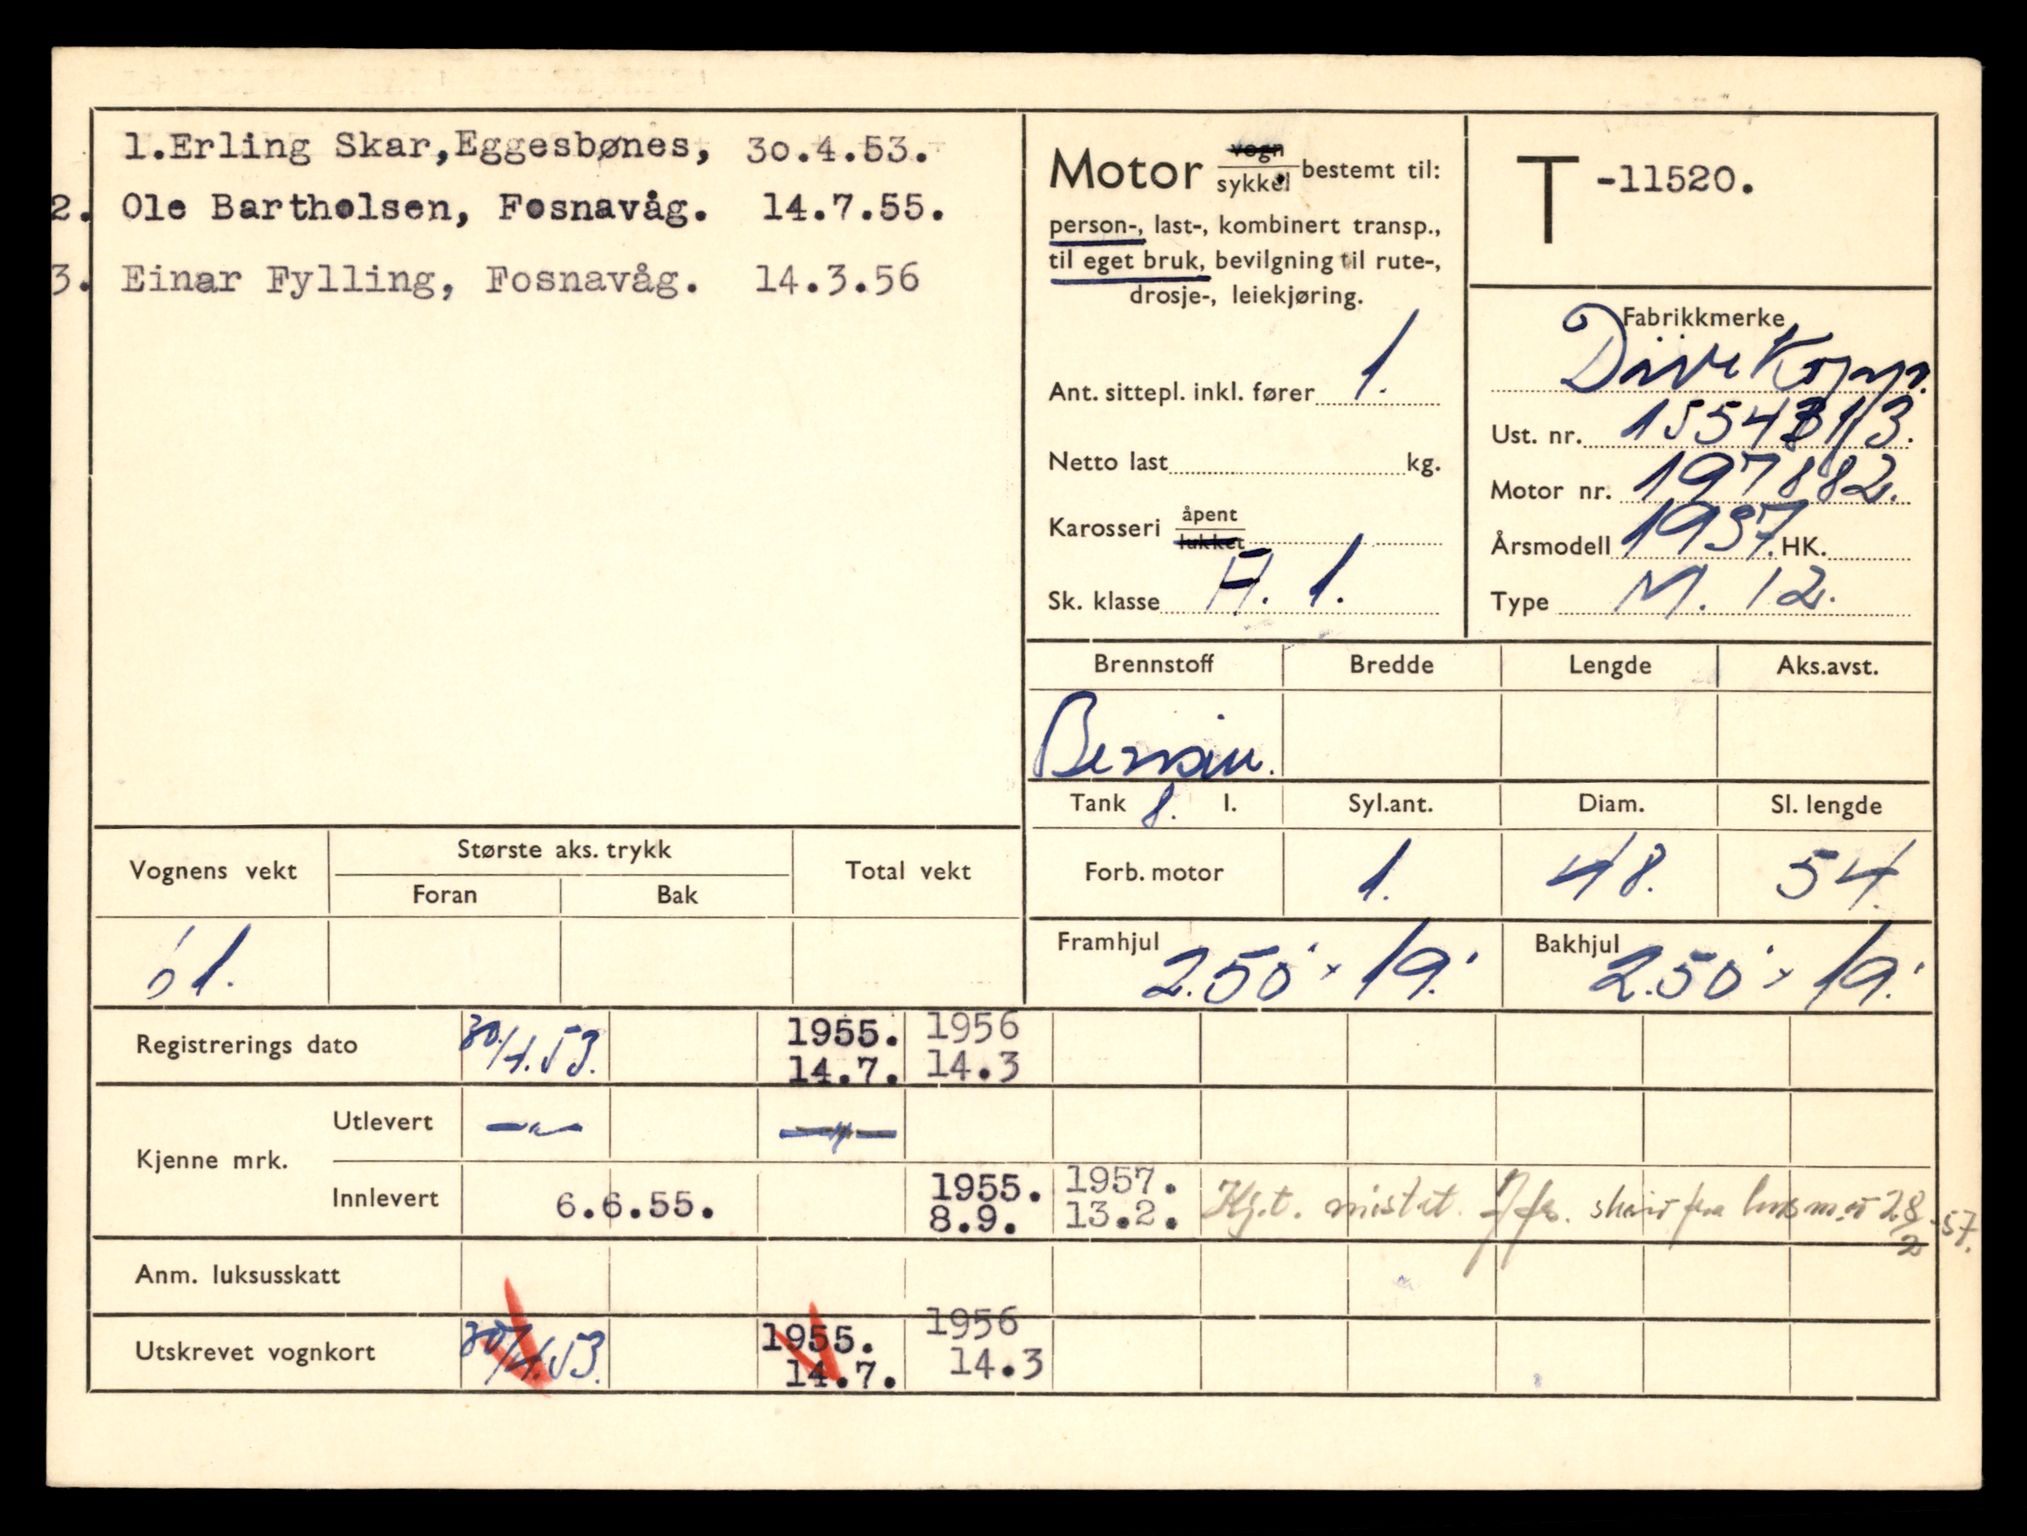 1.Erling Skar,Eggesbønes, 30.4.53.
2. Ole Bartholsen, Fosnavåg. 14.7.55.
3. Einar Fylling, Fosnavåg. 14.3.56
Motor vogn/sykkel bestemt til:
person-, last-, kombinert transp.,
til eget bruk, bevilgning til rute-,
drosje-, leiekjøring.
Ant. sittepl. inkl. fører 1.
Netto last kg.
Karosseri åpent/lukket
Sk. klasse A. 1.
T -11520.
Fabrikkmerke
Ust. nr.
Motor nr. 197882.
Årsmodell 1937. HK.
Type M. 12.
Brennstoff Bredde Lengde Aks.avst.
Bensin.
Tank 8. l. Syl.ant. Diam. Sl. lengde
Forb. motor 1. 48. 54.
Framhjul 2.50 x 19. Bakhjul 2.50 x 19.
Vognens vekt Største aks. trykk Total vekt
Foran Bak
61.
Registrerings dato 30/4.53. 1955. 14.7. 1956 14.3
Kjenne mrk. Utlevert —"— —"—
Innlevert 6.6.55. 1955. 8.9. 1957. 13.2. Kj.t. mistet. 28/2-57.
Anm. luksusskatt
Utskrevet vognkort 30/4.53. 1955. 14.7. 1956 14.3